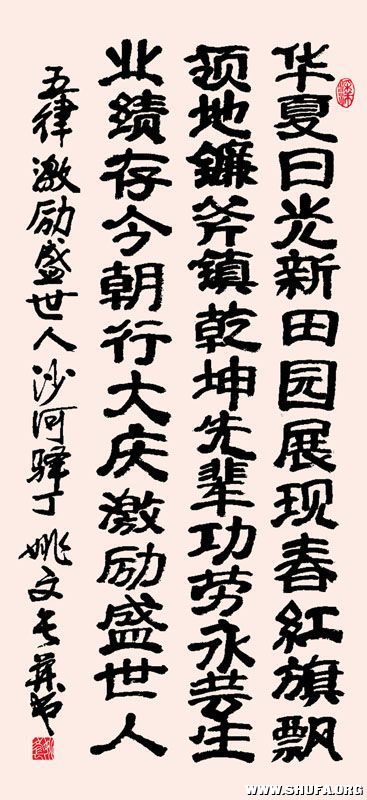 华夏日光新田园展现春紅旗飘
领地镰斧镇乾坤先辈功劳永芸生
业绩存今朝行大庆激励盛世人
五律激励盛世人沙河驿丁姚文
WWW.SHUFA.ORG